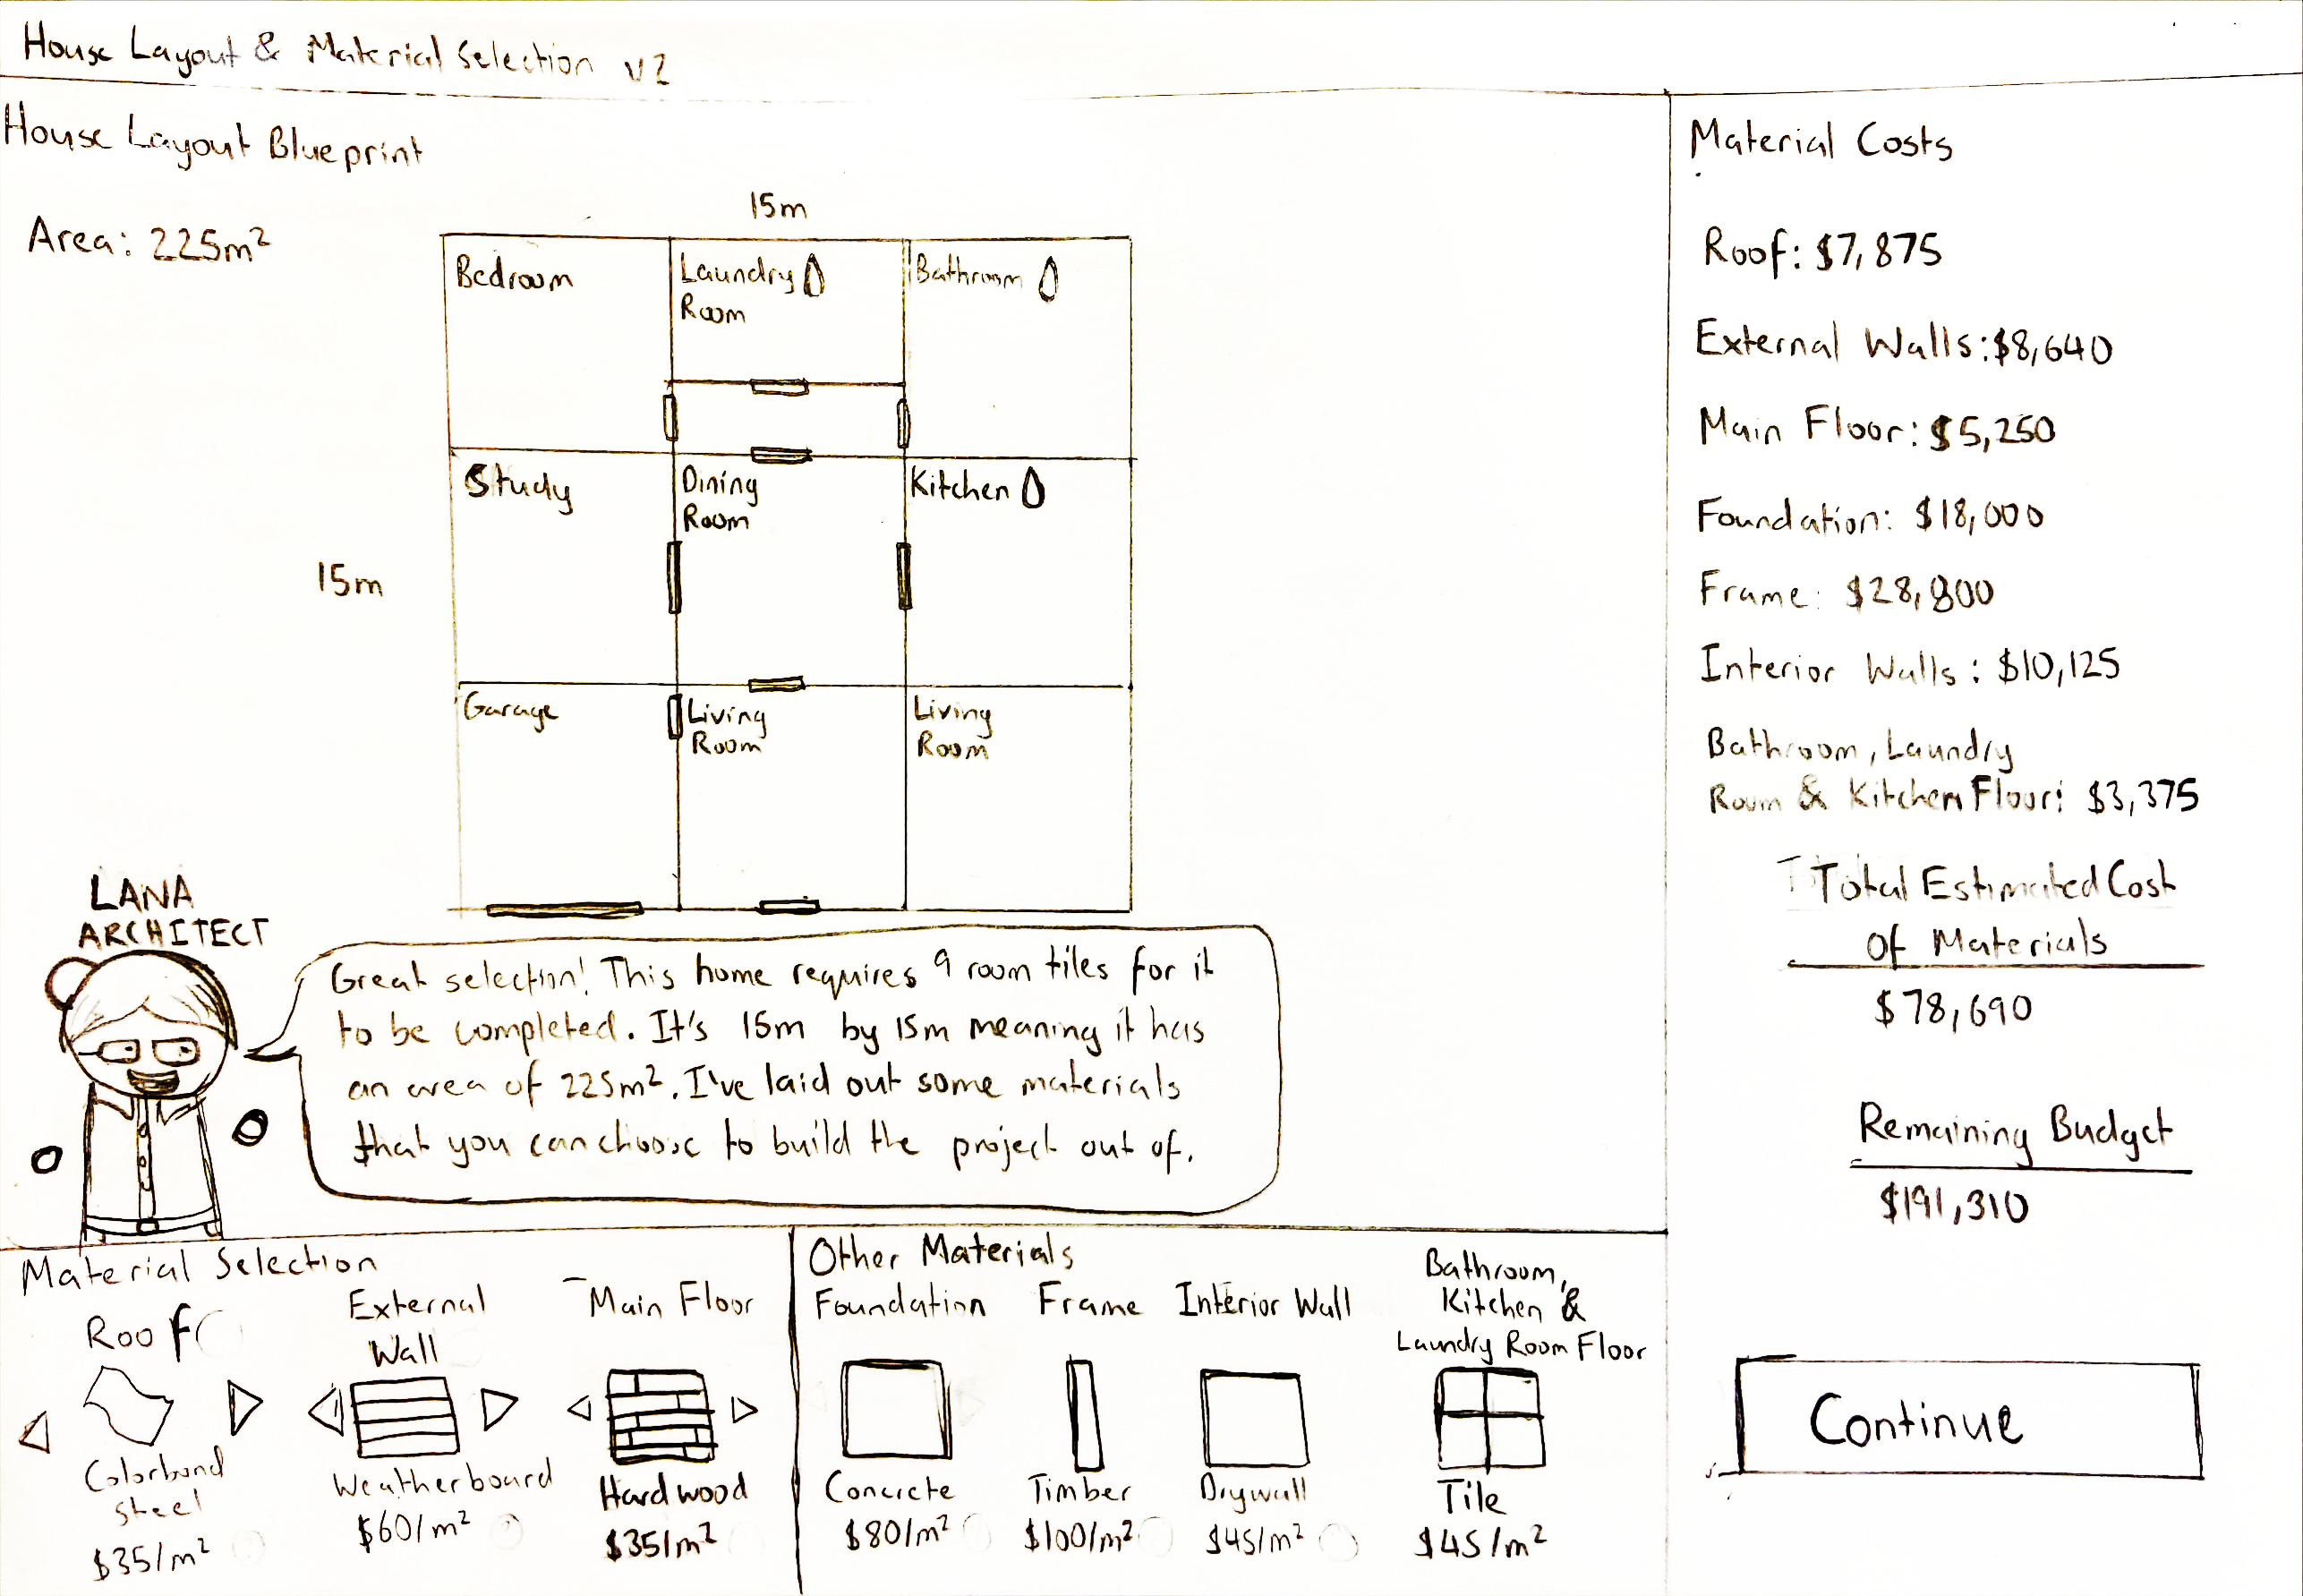 House Layout & Material Selection v2
House Layout Blueprint
Area: 225m²
15m
15m
Bedroom
Laundry
Room
Bathroom
Study
Dining
Room
Kitchen
Garage
Living
Room
Living
Room
LANA
ARCHITECT
Great selection! This home requires 9 room tiles for it
to be completed. It's 15m by 15m meaning it has
an area of 225m². I've laid out some materials
that you can choose to build the project out of.
Material Selection
Roof
Colorbond
Steel
$35/m²
External
Wall
Weatherboard
$60/m²
Main Floor
Hardwood
$35/m²
Other Materials
Foundation
Concrete
$80/m²
Frame
Timber
$100/m²
Interior Wall
Drywall
$45/m²
Bathroom,
Kitchen &
Laundry Room Floor
Tile
$45/m²
Material Costs
Roof: $7,875
External Walls: $8,640
Main Floor: $5,250
Foundation: $18,000
Frame: $28,800
Interior Walls: $10,125
Bathroom, Laundry
Room & Kitchen Floor: $3,375
Total Estimated Cost
Of Materials
$78,690
Remaining Budget
$191,310
Continue